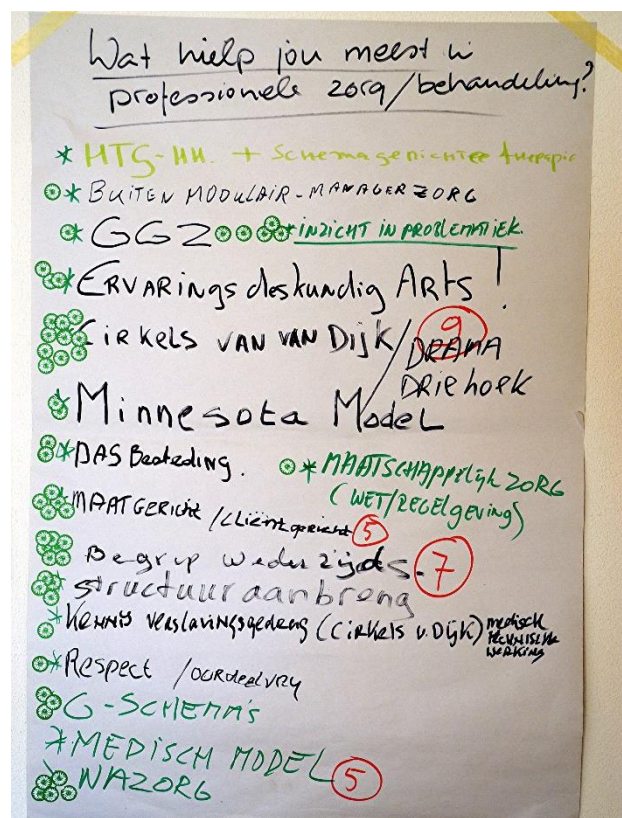 Wat hielp jou meest in
professionele zorg/behandeling?
* HTS-HH. + Schemagerichtee therapie
* BUITEN MODULAIR-MANAGER ZORG
* GGZ * INZICHT IN PROBLEMATIEK.
* ERVARINGSdeskundig ARTS!
CIRKELS VAN VAN DIJK/DRAMA 9
DRIEHOEK
* Minnesota Model
* DAS Besteding. * MAATSCHAPPELIJK ZORG
(WET/REGELGEVING)
* MAATGERICHT /CLIËNTgericht 5
Begrip wederzijds. 7
structuur aanbreng
* KENNIS verslavingsgedrag (CIRKELS v. DIJK) medisch
TECHNISCHE
WERKING
* Respect /OORDEELVRY
G-SCHEMA'S
* MEDISCH MODEL 5
* NAZORG